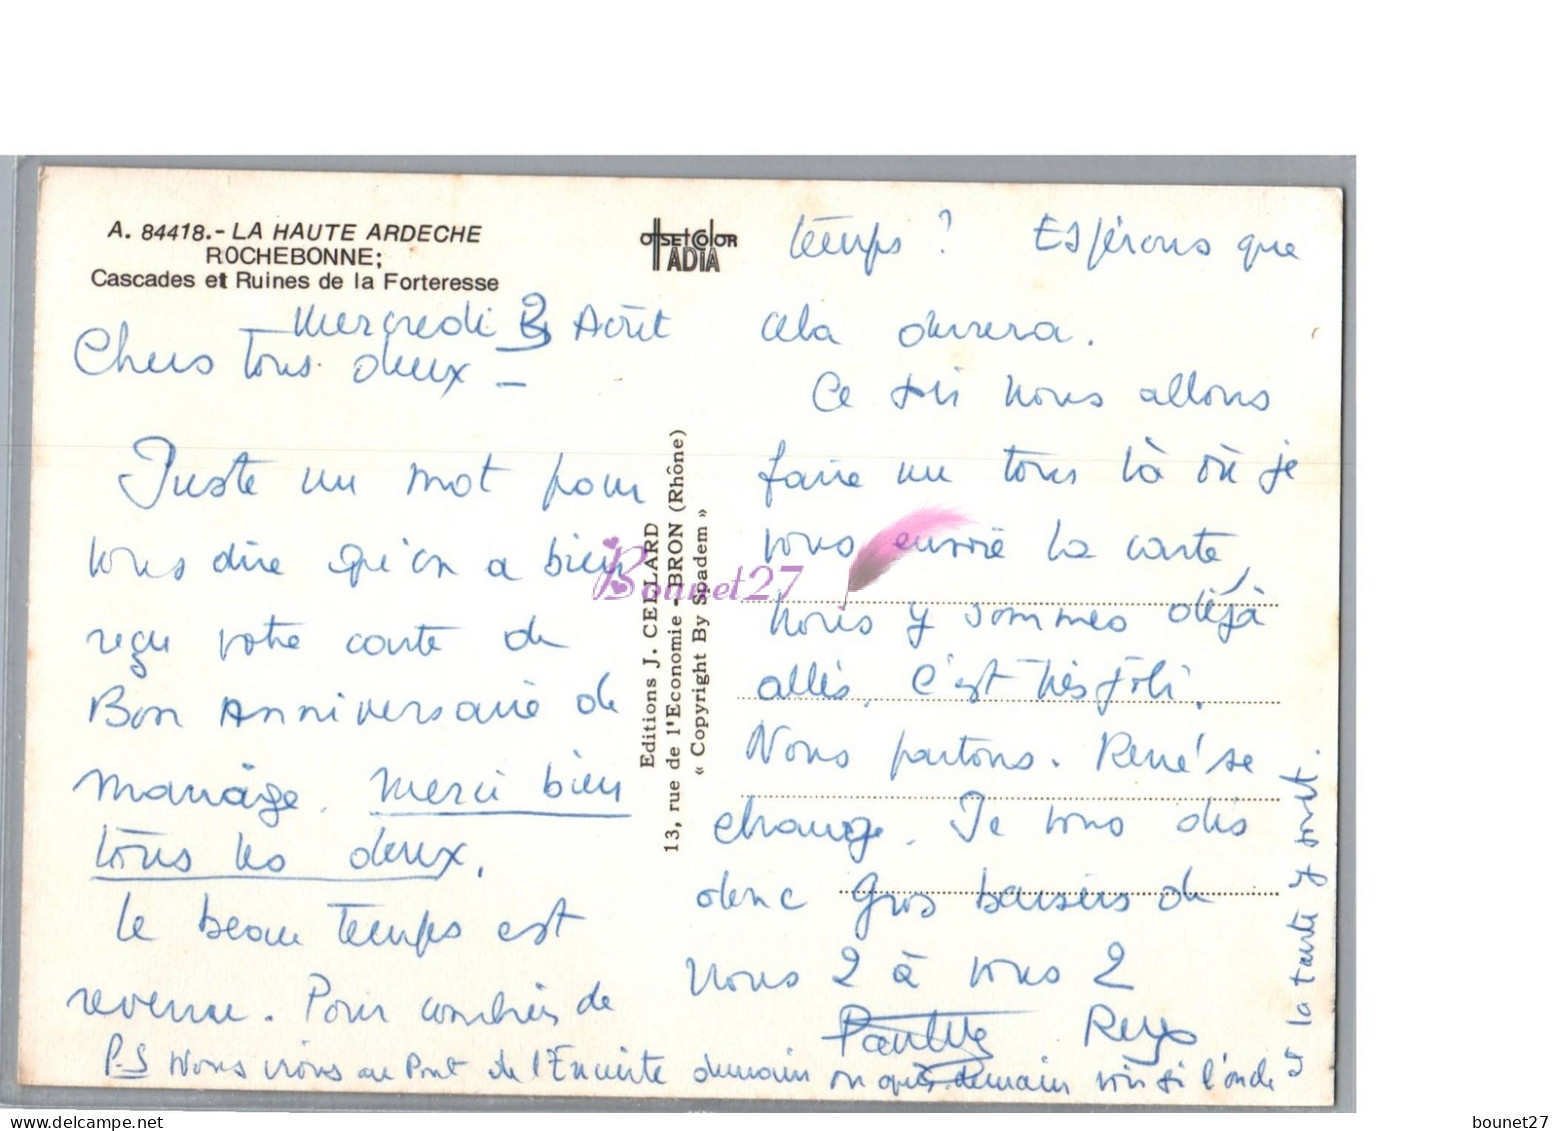 A. 84418.- LA HAUTE ARDECHE
ROCHEBONNE;
Cascades et Ruines de la Forteresse
OFFSET COLOR
IADIA
Mercredi 3 Août
Chers tous deux -
Juste un mot pour
vous dire qu'on a bien
reçu votre carte de
Bon Anniversaire de
mariage. Merci bien
tous les deux.
Le beau temps est
revenu. Pour combien de
temps ? Espérons que
cela durera.
Ce soir nous allons
faire un tour là où je
vous envoie la carte,
nous y sommes déjà
allés, c'est très joli.
Nous partons. René se
change. Je vous dis
donc gros baisers de
nous 2 à vous 2
Paulette
P.S Nous irons au Pont de l'Enceinte demain ou après demain voir si l'oncle
et la tante y sont.
Editions J. CELLARD
13, rue de l'Economie - BRON (Rhône)
« Copyright By Spadem »
Bounet27
bounet27